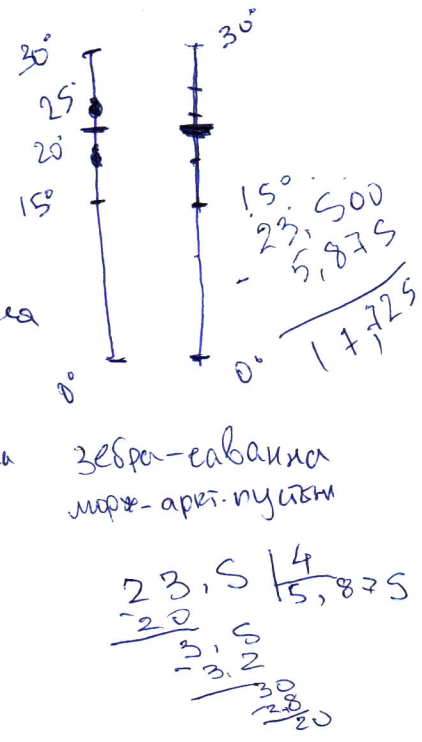 30° 30°
25
20°
15° 15°
23,500
- 5,875
17,725
0° 0°
зебра-саванна
морж-аркт. пустын
23,5 | 4
-20 5,875
3,5
-3,2
30
-28
20